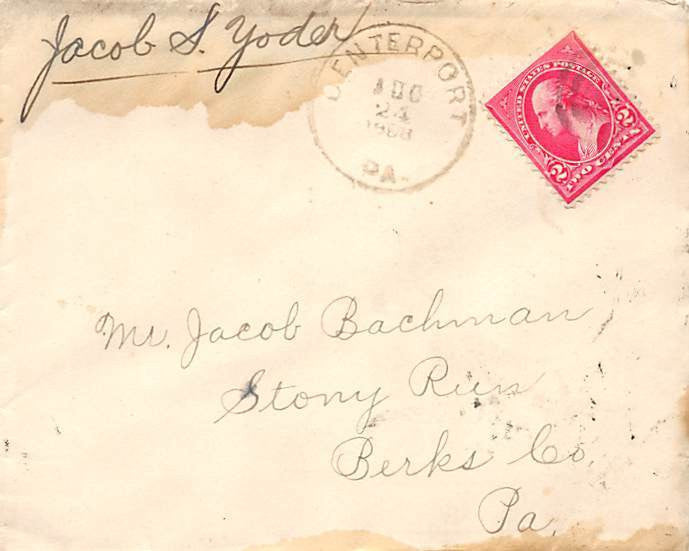 Jacob S. Yoder
CENTERPORT
AUG
24
PA.
UNITED STATES POSTAGE
2 TWO CENTS 2
Mr. Jacob Bachman
Stony Run
Berks Co.
Pa.